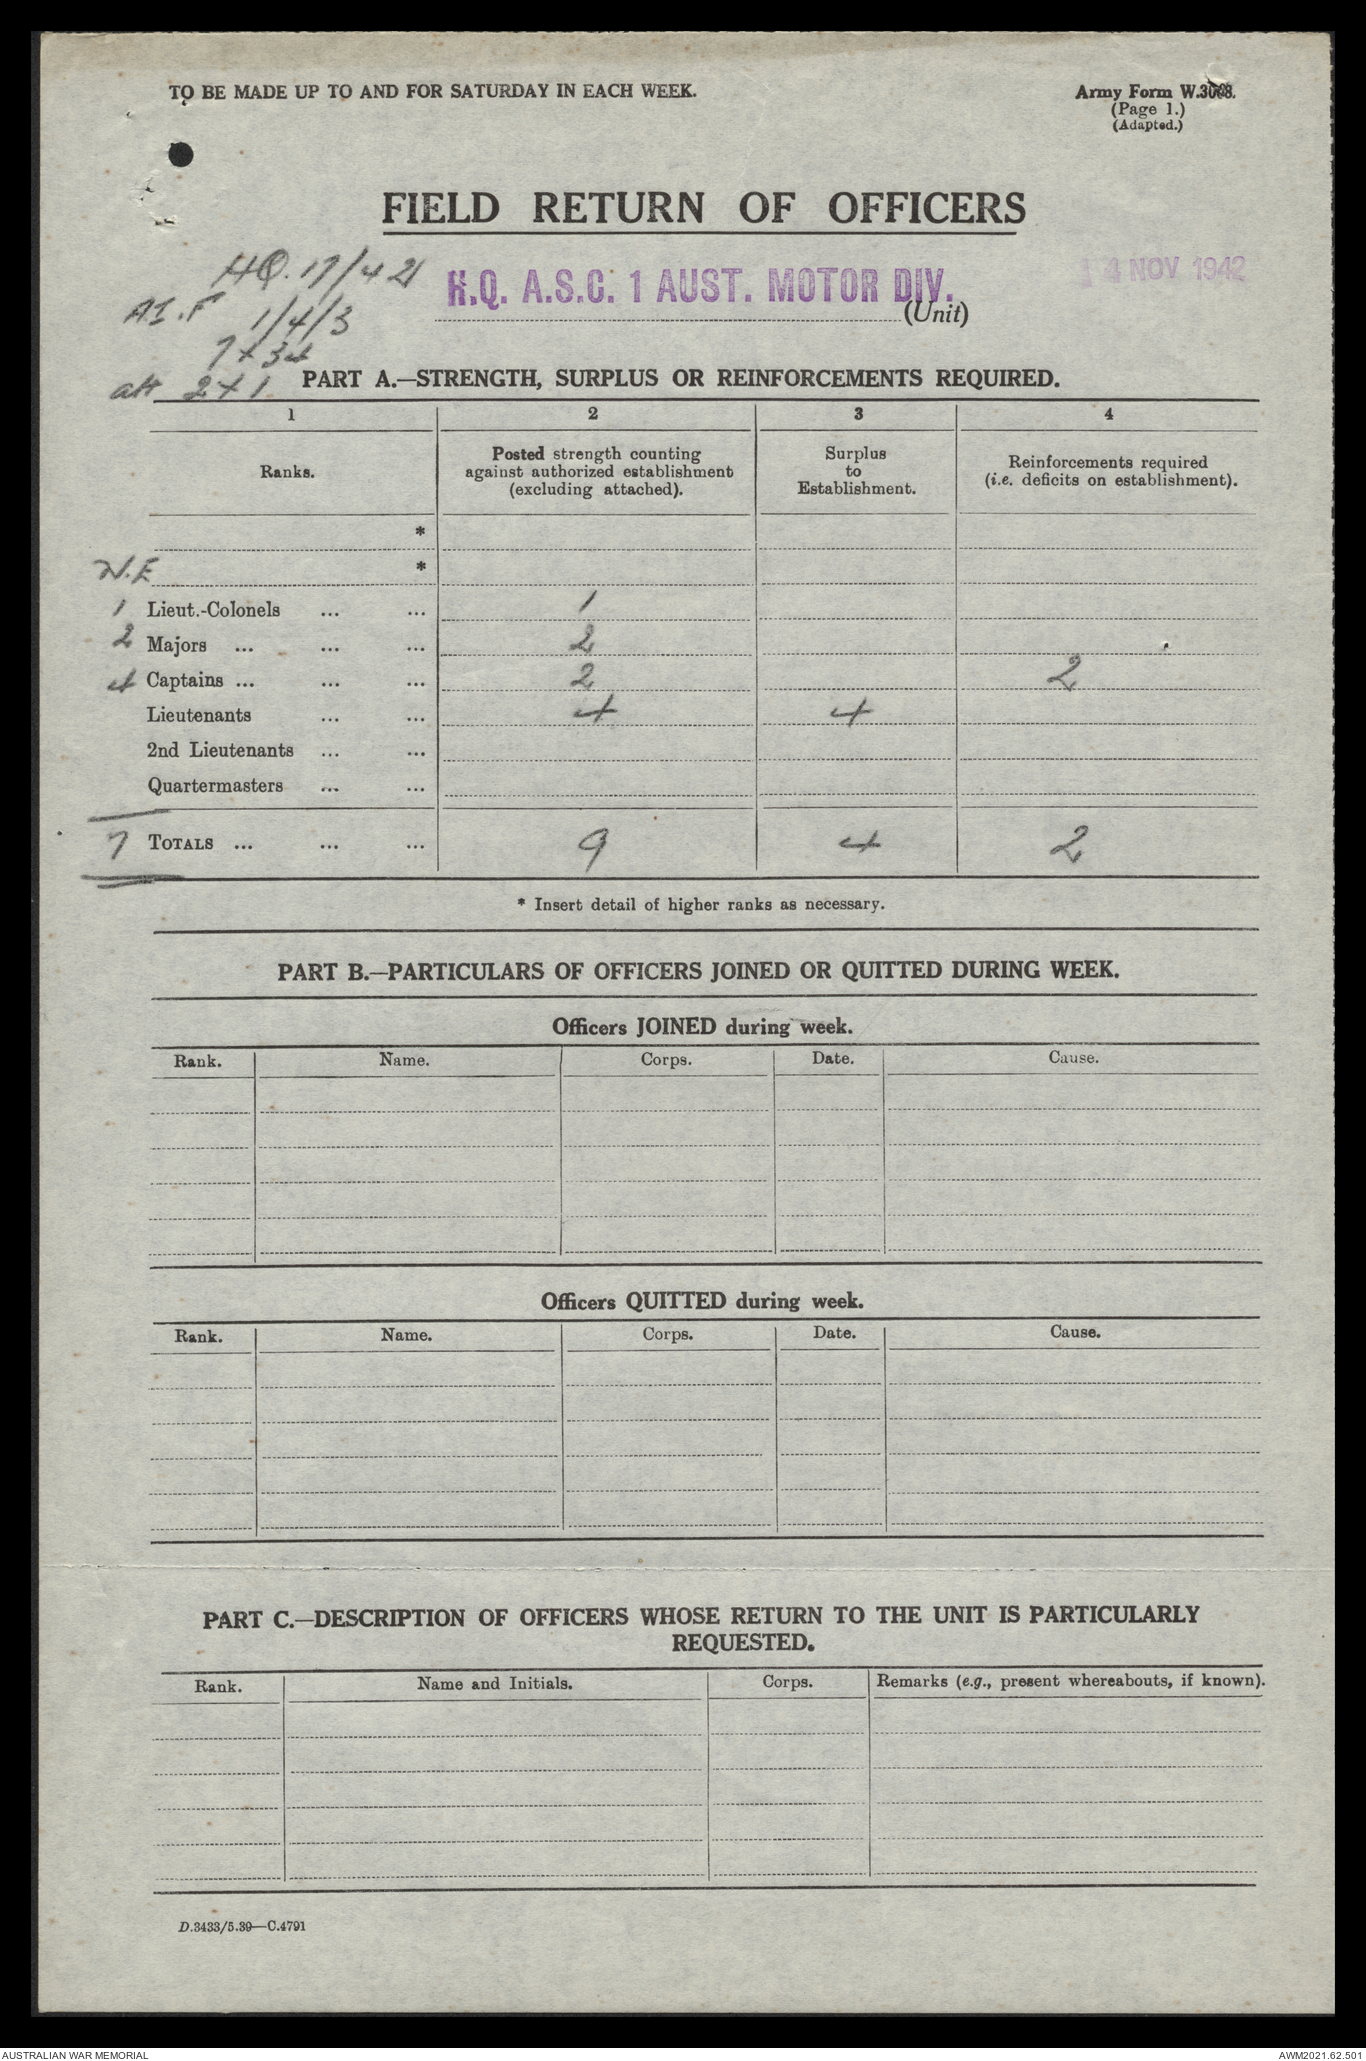 TO BE MADE UP TO AND FOR SATURDAY IN EACH WEEK.
Army Form W.3008.
(Page 1.)
(Adapted.)
FIELD RETURN OF OFFICERS
HQ. 17/421
H.Q. A.S.C. 1 AUST. MOTOR DIV.
14 NOV 1942
(Unit)
A.I.F 1/4/3
7+34
att 2+1
PART A.—STRENGTH, SURPLUS OR REINFORCEMENTS REQUIRED.
1 2 3 4
Ranks.
Posted strength counting
against authorized establishment
(excluding attached).
Surplus
to
Establishment.
Reinforcements required
(i.e. deficits on establishment).
*
W.E *
1 Lieut.-Colonels ... ... 1
2 Majors ... ... ... 2
4 Captains ... ... ... 2 2
Lieutenants ... ... 4 4
2nd Lieutenants ... ...
Quartermasters ... ...
7 TOTALS ... ... ... 9 4 2
* Insert detail of higher ranks as necessary.
PART B.—PARTICULARS OF OFFICERS JOINED OR QUITTED DURING WEEK.
Officers JOINED during week.
Rank. Name. Corps. Date. Cause.
Officers QUITTED during week.
Rank. Name. Corps. Date. Cause.
PART C.—DESCRIPTION OF OFFICERS WHOSE RETURN TO THE UNIT IS PARTICULARLY
REQUESTED.
Rank. Name and Initials. Corps. Remarks (e.g., present whereabouts, if known).
D.3433/5.39—C.4791
AUSTRALIAN WAR MEMORIAL
AWM2021.62.501